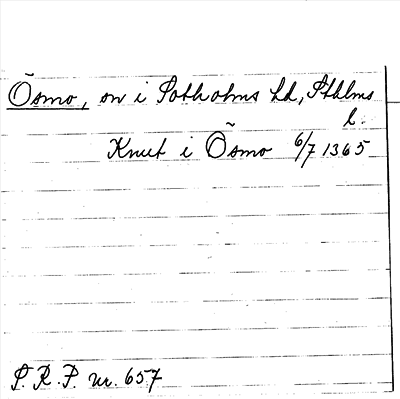 Ösmo, sn i Sotholms hd, Sthlms
l.
Knut i Ösmo 6/7 1365
S. R. P. nr. 657